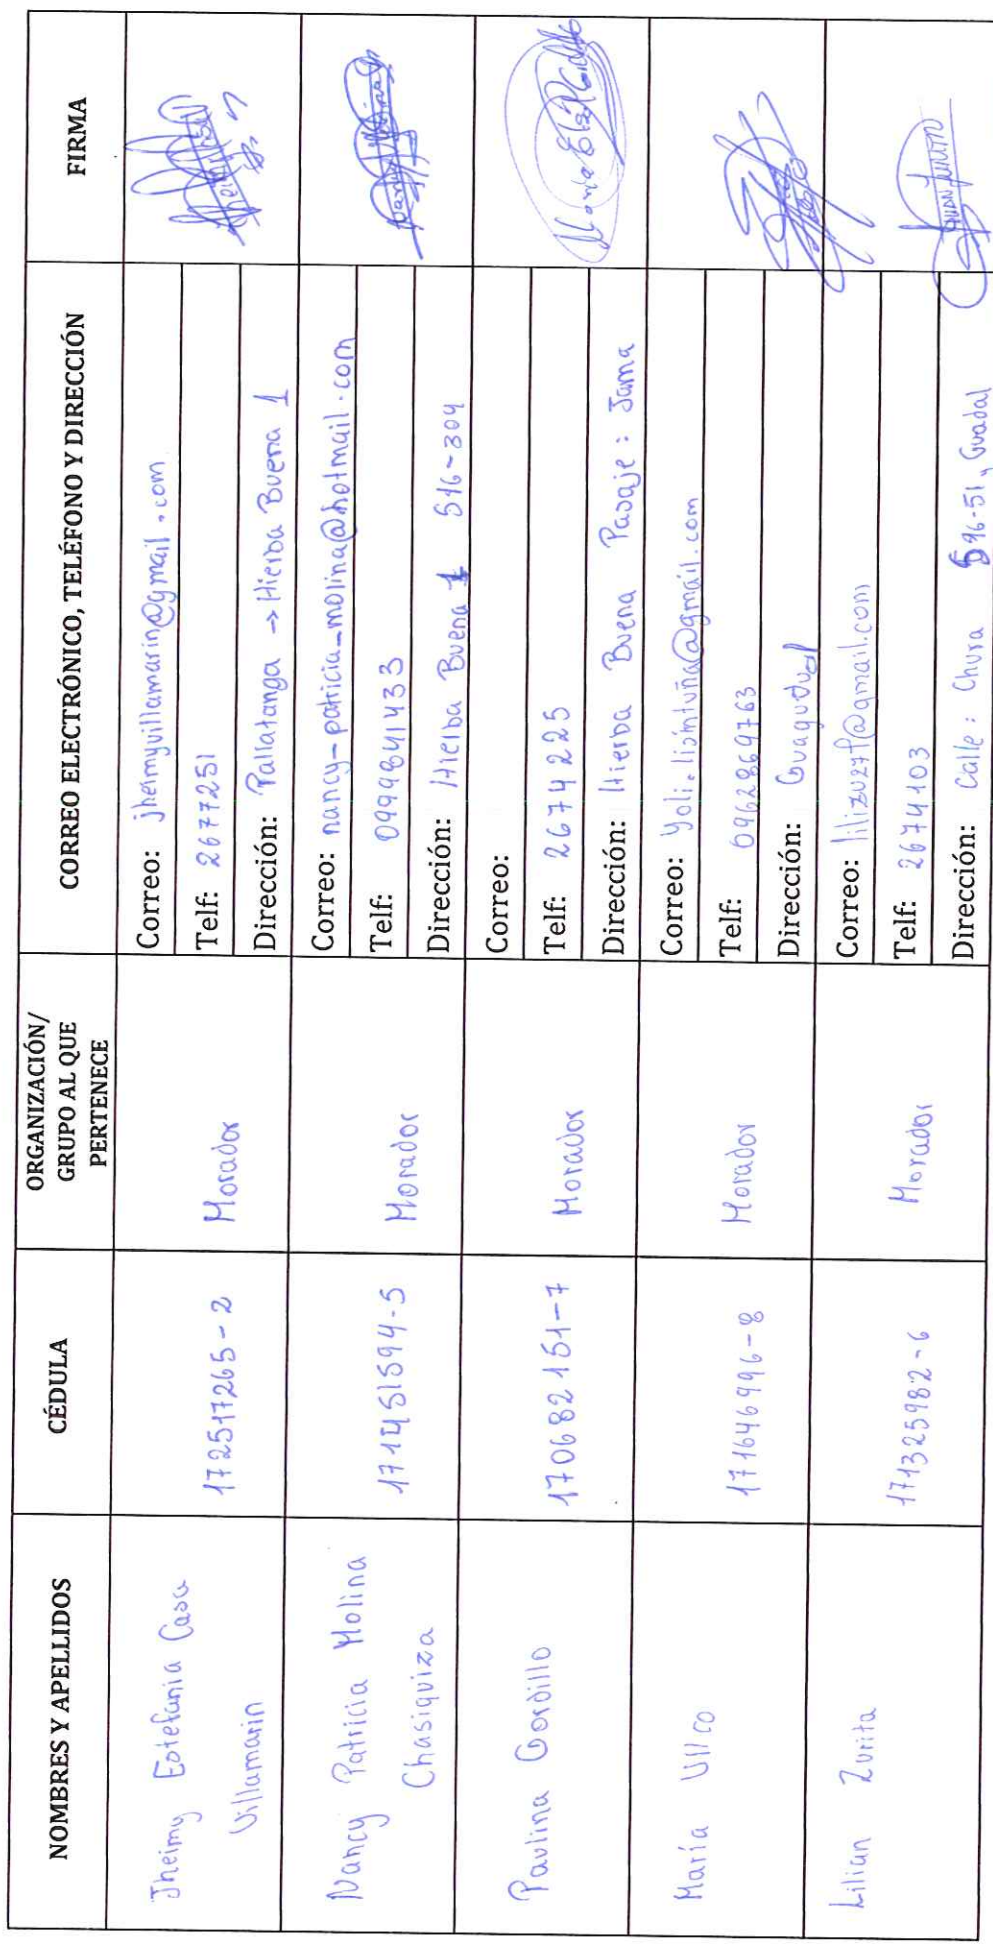 NOMBRES Y APELLIDOS
CÉDULA
ORGANIZACIÓN/
GRUPO AL QUE
PERTENECE
CORREO ELECTRÓNICO, TELÉFONO Y DIRECCIÓN
FIRMA
Jheimy Estefania Casa
Villamarin
172517265-2
Morador
Correo: jheimyvillamarin@gmail.com
Telf: 2677251
Dirección: Pallatanga → Hierba Buena 1
Nancy Patricia Molina
Chasiquiza
171451594-5
Morador
Correo: nancy-patricia_molina@hotmail.com
Telf: 0999841433
Dirección: Hierba Buena 1 S16-304
Paulina Gordillo
170682151-7
Morador
Correo:
Telf: 2674225
Dirección: Hierba Buena Pasaje: Jama
María Ullco
171646996-8
Morador
Correo:
Telf: 0962869763
Dirección:
Lilian Zurita
171325982-6
Morador
Correo: lilizu27f@gmail.com
Telf: 2674103
Dirección: Calle: Chura S96-51, Guadal